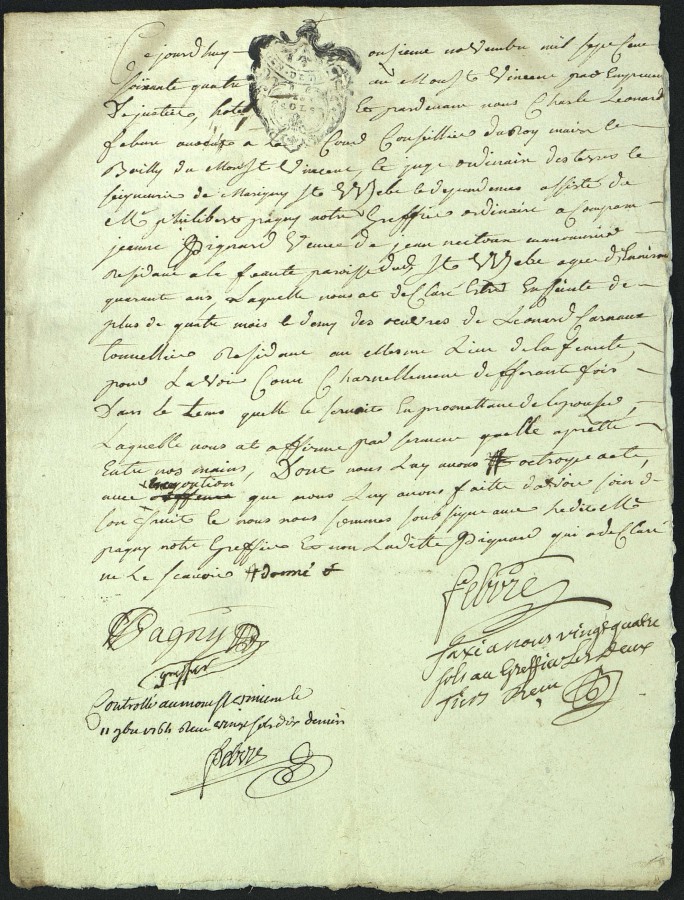 Cejourdhuy onzieme novembre mil sept Cent
soixante quatre au Mont St Vincent par Empruns
De justice, hotel Et pardevant nous Charle Leonard
febvre avocat a la Cour Conseillier du Roy maire le
Bailly du Mont St Vincent, le juge ordinaire des terres le
seigneurie de Marigny St Wsebe le dependences assisté de
Me Philibert pagny notre Greffier ordinaire a Comparu
jeanne Pignard Veuve de jean manouvrié
Residant a le feaute paroisse dud St Wsebe agee d'Environ
quarant ans, Laquelle nous at declaré Estre Enseinte de
plus de quatre mois le demy des oeuvres de Leonard Carnaux
tonnellier Residant au mesme Lieu de la feaute,
pour Lavoir Connu Charnellement defferante fois
Dans le tems quelle le servoit En promettant de lepouser,
Laquelle nous at affirmé par serment quelle a pretté
Entre nos mains, Dont nous Luy avons octroyé acte,
avec injontion que nous Luy avons faitte davoir soin de
son fruit le nous nous sommes soubsigné avec ledit Me
pagny notre Greffier Et non Laditte Pignard qui a declaré
ne Le scavoir
febvre
Pagny
greffier
taxé a nous vingt quatre
sols au Greffier Les deux
tiers Receu
Controllé au mont st vincent le
11 9bre 1764 Receu sols dix deniers
febvre